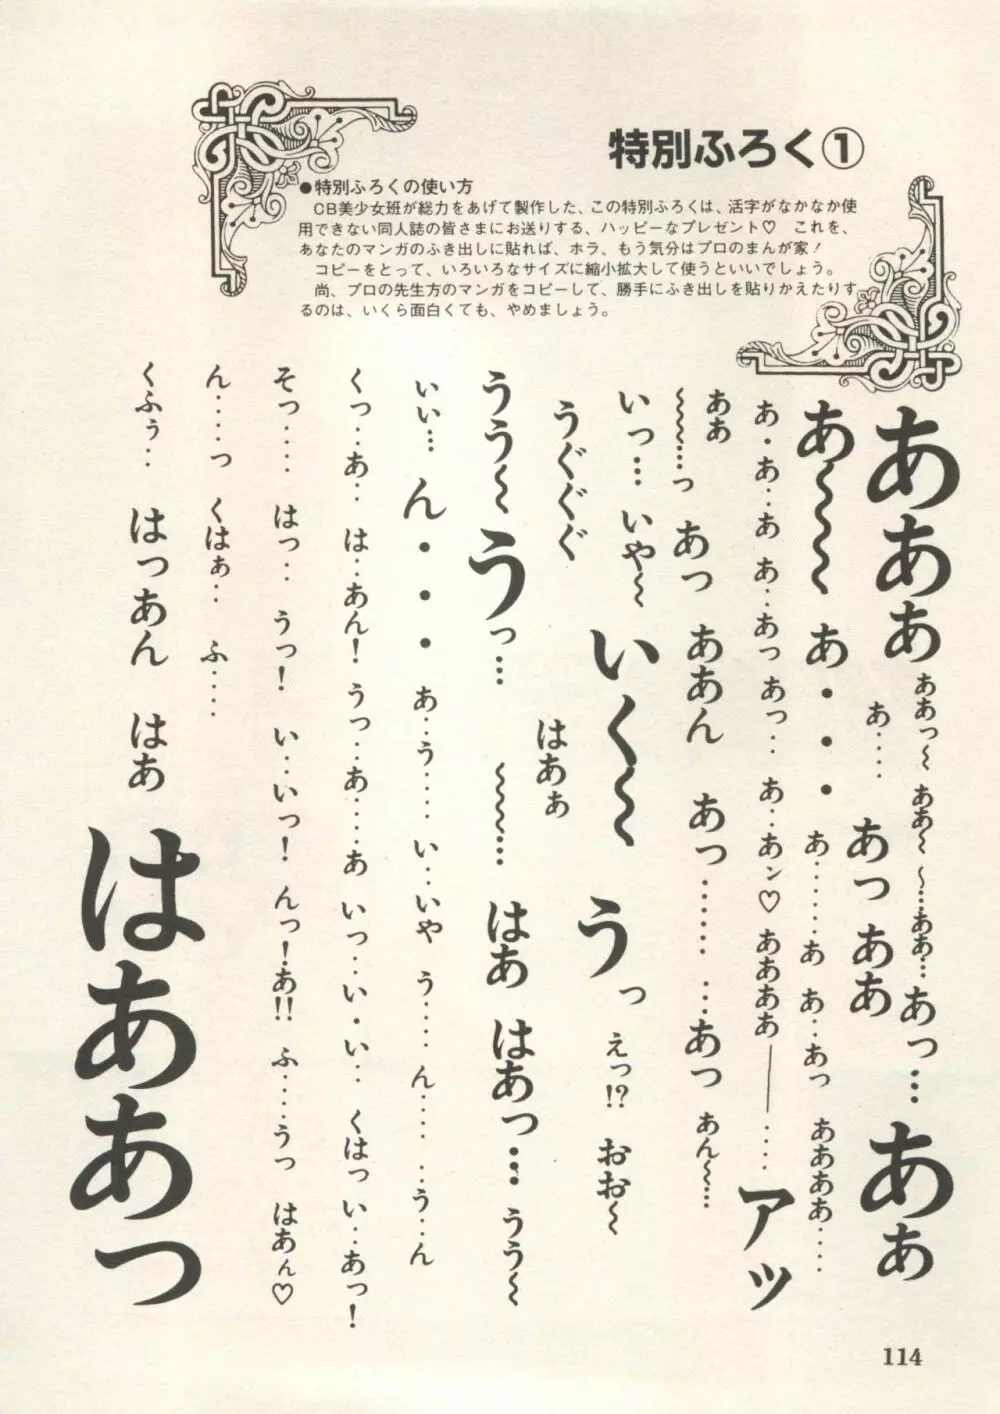 特別ふろく①
●特別ふろくの使い方
CB美少女班が総力をあげて製作した、この特別ふろくは、活字がなかなか使
用できない同人誌の皆さまにお送りする、ハッピーなプレゼント♡　これを、
あなたのマンガのふき出しに貼れば、ホラ、もう気分はプロのまんが家！
コピーをとって、いろいろなサイズに縮小拡大して使うといいでしょう。
尚、プロの先生方のマンガをコピーして、勝手にふき出しを貼りかえたりす
るのは、いくら面白くても、やめましょう。
あああ
ああっ〜　ああ〜　〜……ああ…　あっ…
ああ
あ‥‥　あっ　ああ
あ〜〜〜　あ・・・　あ……あ　あ‥あっ　ああああ‥‥
あ・あ‥あ　あ‥あっ　あっ‥　あ‥あン♡　ああああ――‥‥アッ
ああ
〜〜〜…っ　あっ　ああん　あっ……　…あっ　あん〜…
いっ…　いや〜　いく〜〜　うっ　えっ!?　おお〜
うぐぐぐ　はあぁ
うう〜　うっ…　〜〜〜…　はあ　はあっ…　うう〜
いい…　ん・・・　あ‥う‥‥　い‥いや　う‥‥ん‥‥　‥う‥ん
くっ‥あ‥　は‥あん！　うっ‥あ‥‥あ　いっ‥い・い‥　くはっ　い‥あっ！
そっ‥‥　はっ‥　うっ！　い‥いっ！　んっ！あ!!　ふ‥‥うっ　はあん♡
ん‥‥っ　くはぁ‥　ふ‥‥
くふぅ‥　はっあん　はあ　はああっ
114